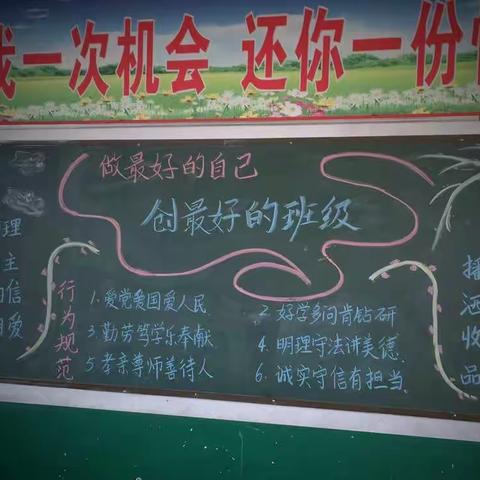 我一次机会 还你一份
做最好的自己
创最好的班级
理
主
信
爱
行为规范
1.爱党爱国爱人民
2.好学多问肯钻研
3.勤劳笃学乐奉献
4.明理守法讲美德.
5.孝亲尊师善待人
6.诚实守信有担当.
播
洒
收
品